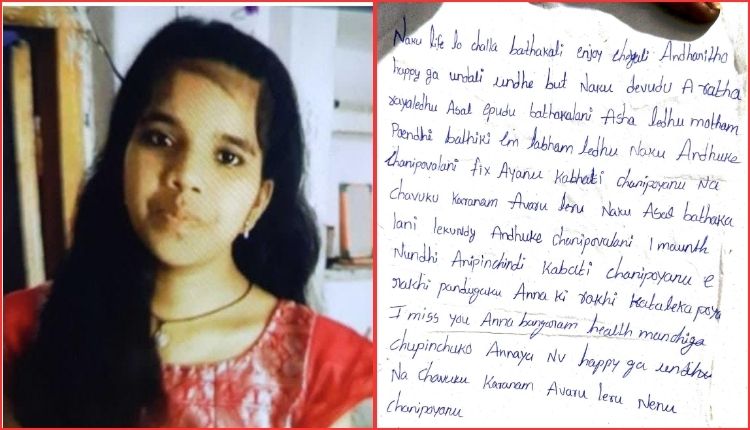 Naku life lo challa bathakali enjoy cheyali Andharitho
happy ga undali undhe but Naku devudu A ratha
rayaledhu Asal epudu bathakalani Asha ledhu motham
Paendhi bathiki Em labham ledhu Naku Andhuke
chanipovalani fix Ayanu Kabhati chanipoyanu Na
chavuku Karanam Avaru leru Naku Asal bathaka
lani lekundy Andhuke chanipovalani 1 maunth
Nundhi Anipinchindi Kabati chanipoyanu e
rakhi pandugaku Anna ki rakhi Kataleka poya
I miss you Anna bangaram health munchiga
chupinchuko Annaya Nv happy ga undhu
Na chavuku Karanam Avaru leru Nenu
chanipoyanu